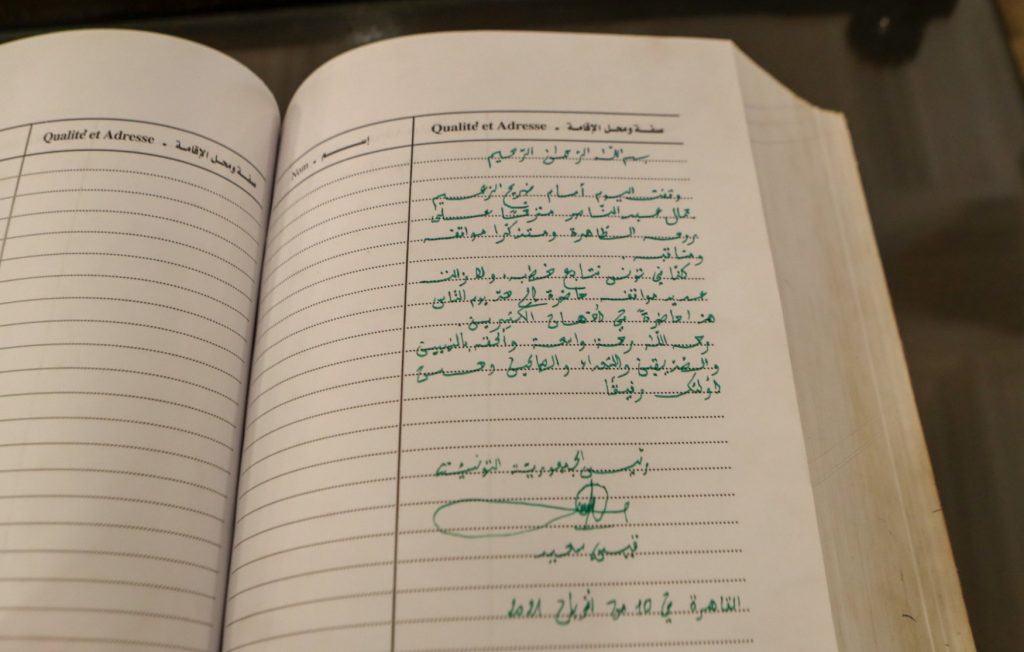 Qualité et Adresse - صفة ومحل الإقامة
Nom - إسم
Qualité et Adresse - صفة ومحل الإقامة
بسم الله الرحمان الرحيم
وقفت اليوم أمام ضريح الزعيم
جمال عبد الناصر مترحما على
روحه الطاهرة ومتذكرا مواقفه
ومناقبه.
كنا في تونس نتابع خطبه، ولا زالت
عديد مواقفه حاضرة إلى حد يوم الناس
هذا حاضرة في أذهان الكثيرين.
رحمه الله رحمة واسعة وألحقه بالنبيين
والصديقين والشهداء والصالحين وحسن
أولئك رفيقا
رئيس الجمهورية التونسية
قيس سعيد
القاهرة في 10 من أفريل 2021